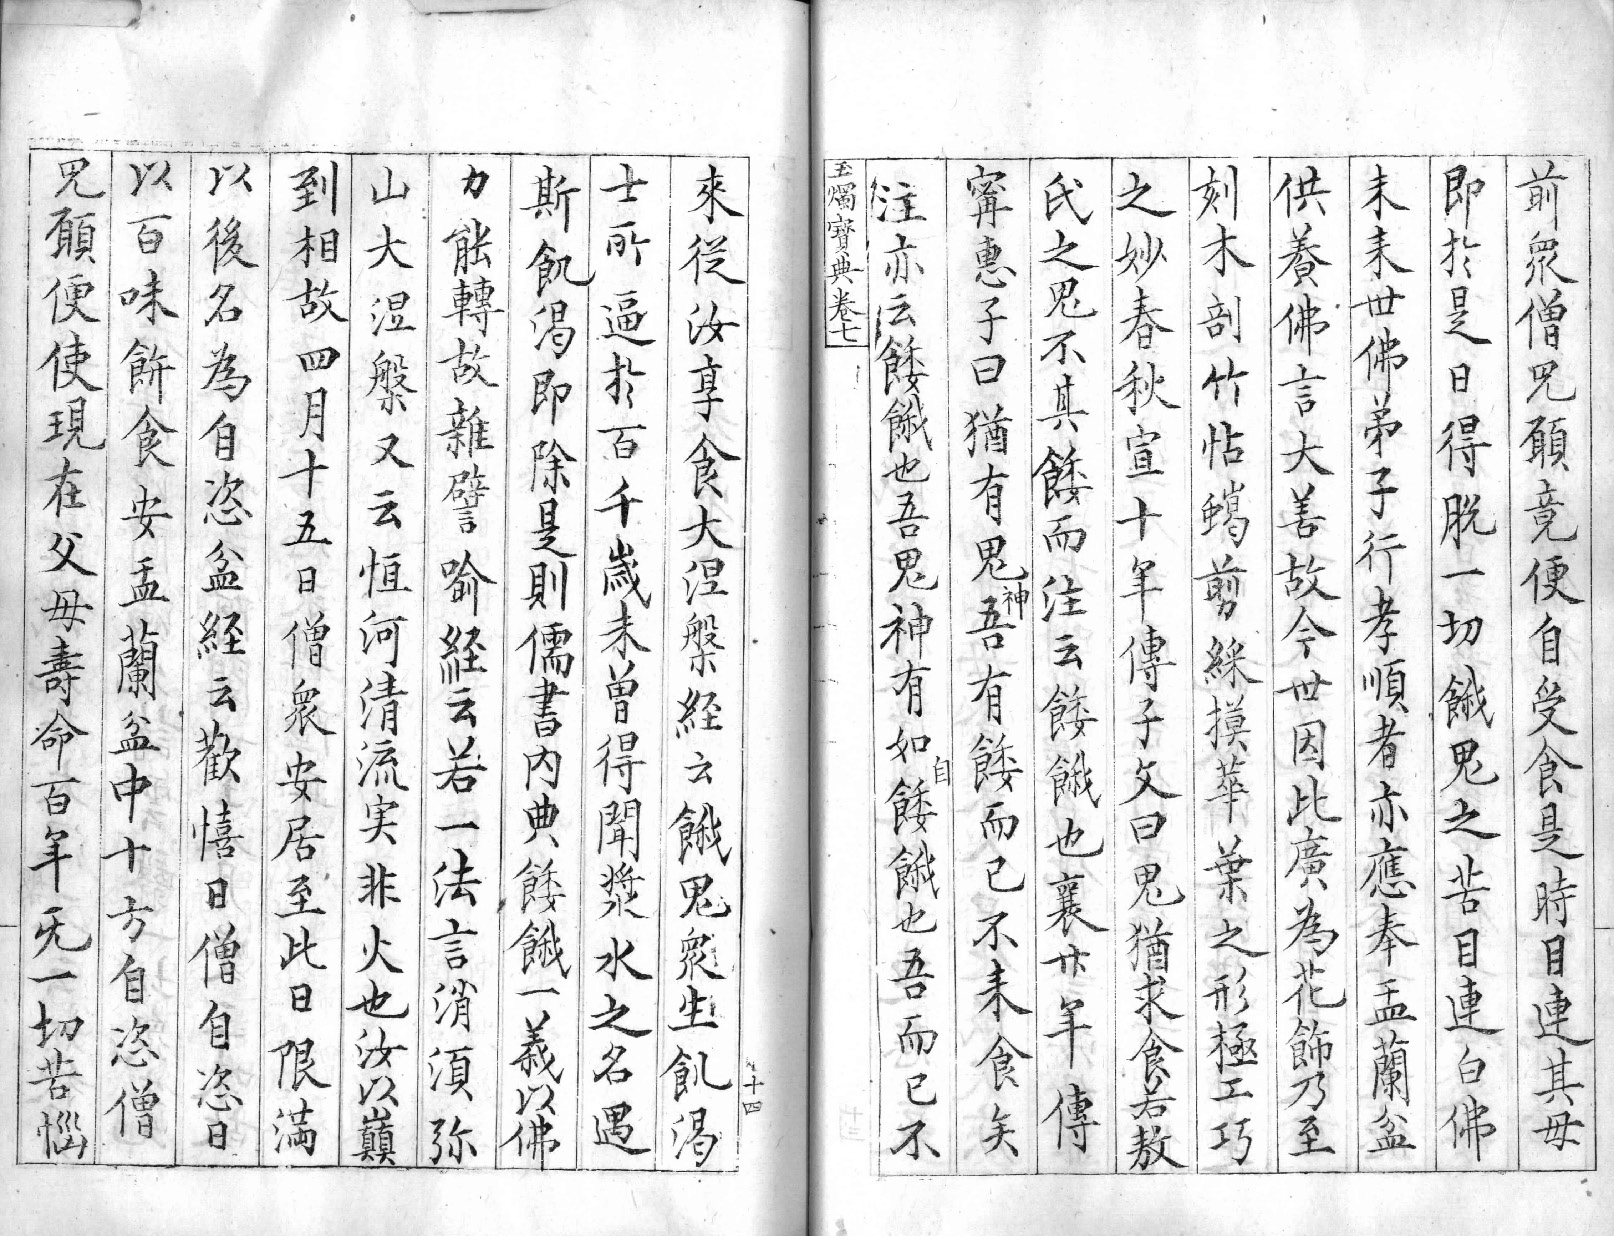 前衆僧呪願竟便自受食是時目連其母
即於是日得脱一切餓鬼之苦目連白佛
未來世佛弟子行孝順者亦應奉盂蘭盆
供養佛言大善故今世因此廣為花飾乃至
刻木剖竹帖蠟剪綵摸華葉之形極工巧
之妙春秋宣十年傳子文曰鬼猶求食若敖
氏之鬼不其餧而注云餧餓也襄廿年傳
寗惠子曰猶有鬼神吾有餧而已不来食矣
注亦云餧餓也吾鬼神有如自餧餓也吾而已不
玉燭寶典卷七
來從汝享食大涅槃経云餓鬼衆生飢渴
十四
士所逼於百千歳未曽得聞漿水之名遇
斯飢渴即除是則儒書内典餧餓一義以佛
力能轉故雜譬喻経云若一法言消須弥
山大涅槃又云恒河清流実非火也汝以巔
到相故四月十五日僧衆安居至此日限滿
以後名為自恣盆経云歡憘日僧自恣日
以百味餅食安盂蘭盆中十方自恣僧
呪願便使現在父母壽命百年无一切苦惱